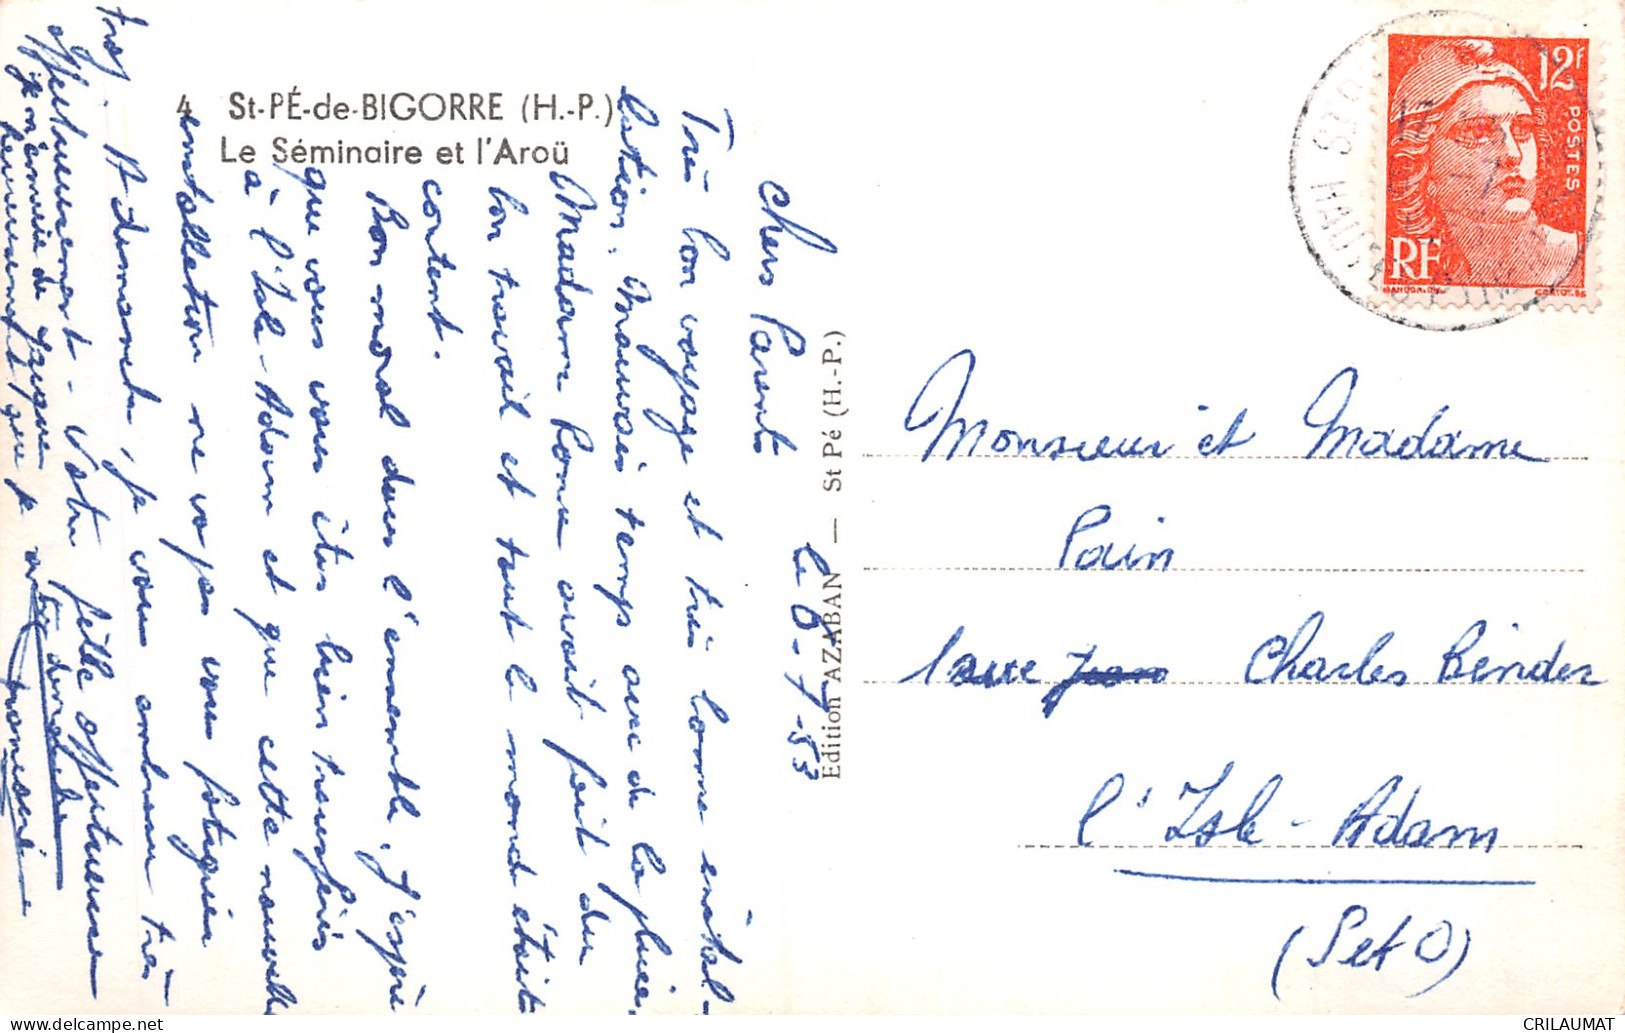 4 St-PÉ-de-BIGORRE (H.-P.)
Le Séminaire et l'Aroü
le 8-7-53
Chers Parents
Très bon voyage et très bonne instal-
lation. Mauvais temps avec de la pluie.
Madame avait fait du
bon travail et tout le monde était
content.
Bon moral dans l'ensemble. J'espère
que vous vous êtes bien transférés
à l'Isle-Adam et que cette nouvelle
installation ne va pas vous fatiguer
trop. A Dimanche, je vous embrasse très
affectueusement - Votre fille affectueuse
Edition AZABAN — St Pé (H.-P.)
12F
POSTES
RF
Monsieur et Madame
Pain
1 rue Charles Binder
l'Isle-Adam
(S et O)
CRILAUMAT